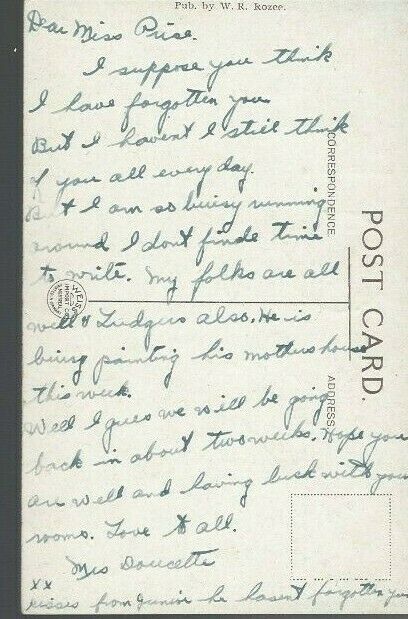 Pub. by W. R. Rozee.
Dear Miss Price.
I suppose you think
I have forgotten you
But I havent I still think
of you all every day.
But I am so buisy running
around I dont finde time
to write. My folks are all
well & Ludgers also. He is
buisy painting his mothers house
this week.
Well I guess we will be going
back in about two weeks. Hope you
are well and having luck with you
rooms. Love to all.
Mrs Doucette
xx
kisses from Junior he hasent forgotten you
POST CARD.
CORRESPONDENCE
ADDRESS